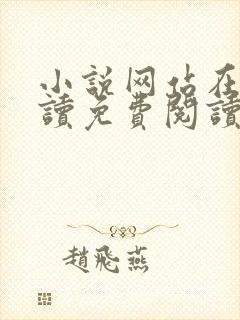 小説网站在
讀免費閱讀
趙飛燕